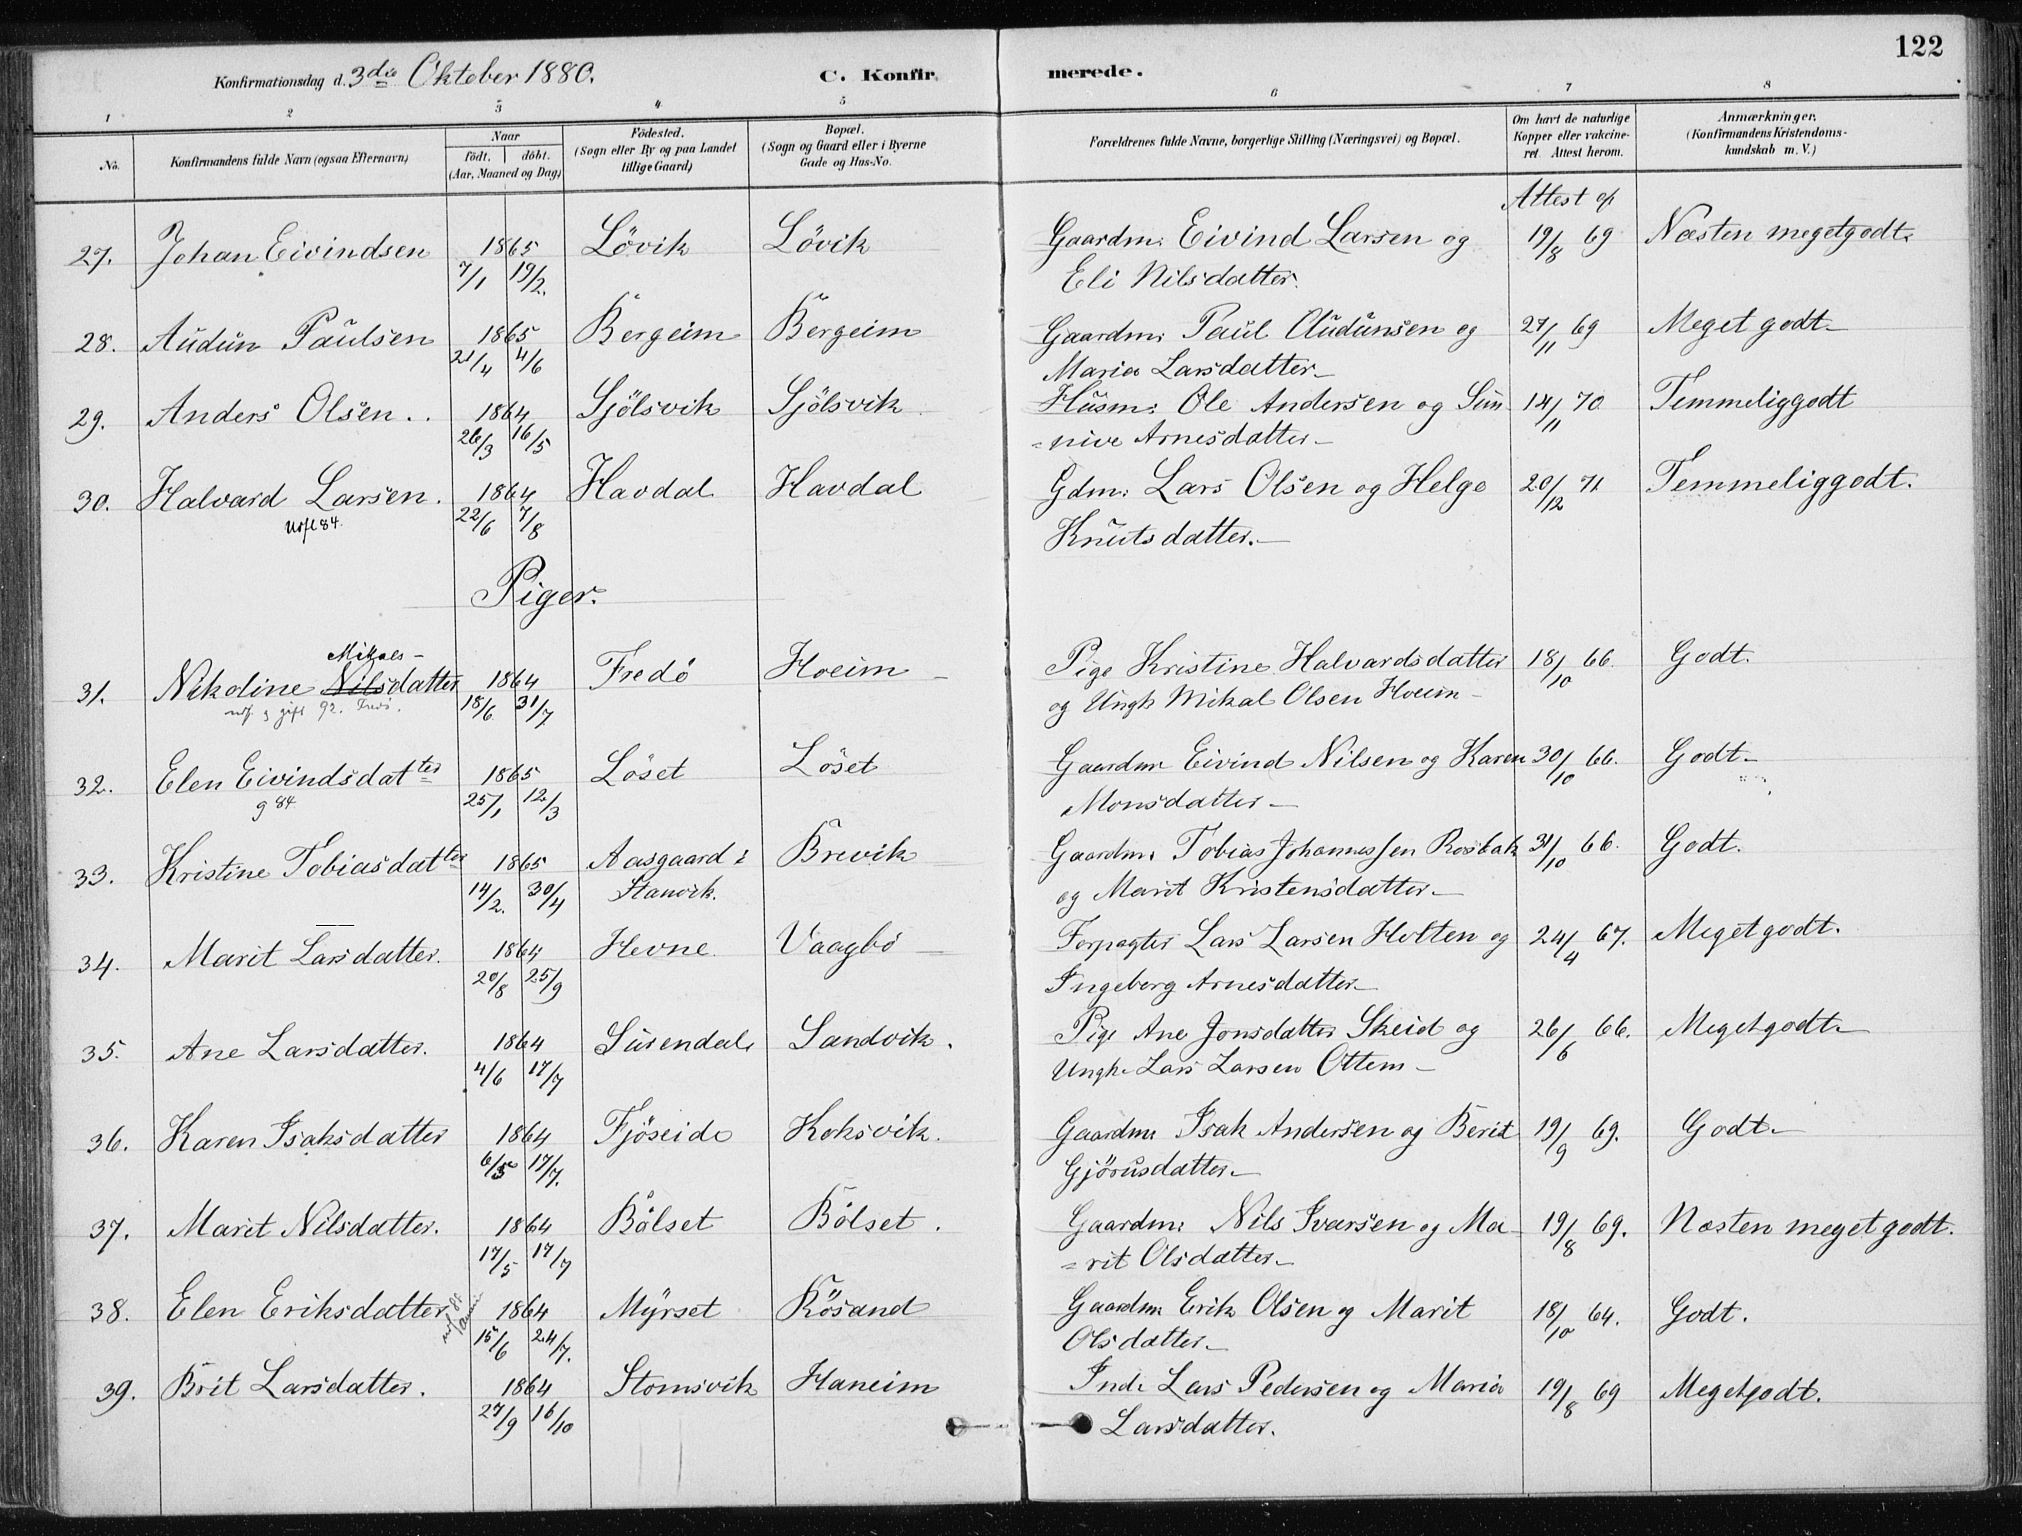 122
Konfirmationsdag d. 3die Oktober 1880. C. Konfirmerede.
1 2 3 4 5 6 7 8
No. Konfirmandens fulde Navn (ogsaa Efternavn) Naar födt. döbt. (Aar, Maaned og Dag) Födested. (Sogn eller By og paa Landet tillige Gaard) Bopæl. (Sogn og Gaard eller i Byerne Gade og Hus-No. Forældrenes fulde Navne, borgerlige Stilling (Næringsvei) og Bopæl. Om havt de naturlige Kopper eller vakcineret. Attest herom. Anmærkninger. (Konfirmandens Kristendomskundskab m. V.)
Attest af
27. Johan Eivindsen 1865 Lövik Lövik Gaardm: Eivind Larsen og 19/8 69 Næsten megetgodt.
7/1 19/2. Eli Nilsdatter.
28. Audun Paulsen 1865 Bergeim Bergeim Gaardm: Paul Audunsen og 27/11 69 Meget godt
21/4 4/6 Maria Larsdatter
29. Anders Olsen.. 1864 Sjölsvik Sjölsvik Husm: Ole Andersen og Sun 14/11 70 Temmeliggodt
26/3 16/5 =nive Arnesdatter
30. Halvard Larsen. 1864 Havdal Havdal Gdm: Lars Olsen og Helge 20/12 71. Temmeliggodt.
84. 22/6 7/8 Knutsdatter.
Piger.
Mikals-
31. Nikoline Nilsdatter 1864 Fredö Hoeim Pige Kristine Halvardsdatter 18/10 66. Godt.
gift 92. 18/6 31/7 og Ungk Mikal Olsen Hoeim
32. Elen Eivindsdatter 1865 Löset Löset Gaardm Eivind Nilsen og Karen 30/10 66. Godt
g 84 25/1 12/3 Monsdatter
33. Kristine Tobiasdatter 1865 Aasgaard i Brevik Gaardm: Tobias Johannessen Rosbak 31/10 66. Godt.
14/2. 30/4 Stanvik. og Marit Kristensdatter
34. Marit Larsdatter. 1864 Hevne Vaagbö Forpagter Lars Larsen Holten og 24/4 67. Megetgodt.
20/8 25/9 Ingeborg Arnesdatter
35. Ane Larsdatter. 1864 Surendal Sandvik. Pige Ane Jonsdatter Skeid og 26/6 66. Megetgodt
4/6 17/7 Ungk. Lars Larsen Ottem
36. Karen Isaksdatter 1864 Fjöseide Koksvik. Gaardm Isak Andersen og Berit 19/9 69. Godt
6/5 17/7. Gjörusdatter
37. Marit Nilsdatter. 1864 Bölset Bölset. Gaardm: Nils Ivarsen og Ma- 19/8 69. Næsten megetgodt.
17/5 17/7 =rit Olsdatter
38. Elen Eriksdatter 1864 Myrset Kösand Gaardm Erik Olsen og Marit 18/10 64. Godt.
15/6 24/7. Olsdatter
39. Brit Larsdatter. 1864 Stomsvik Haneim Ind: Lars Pedersen og Maria 19/8 69 Megetgodt.
27/9 16/10 Larsdatter.